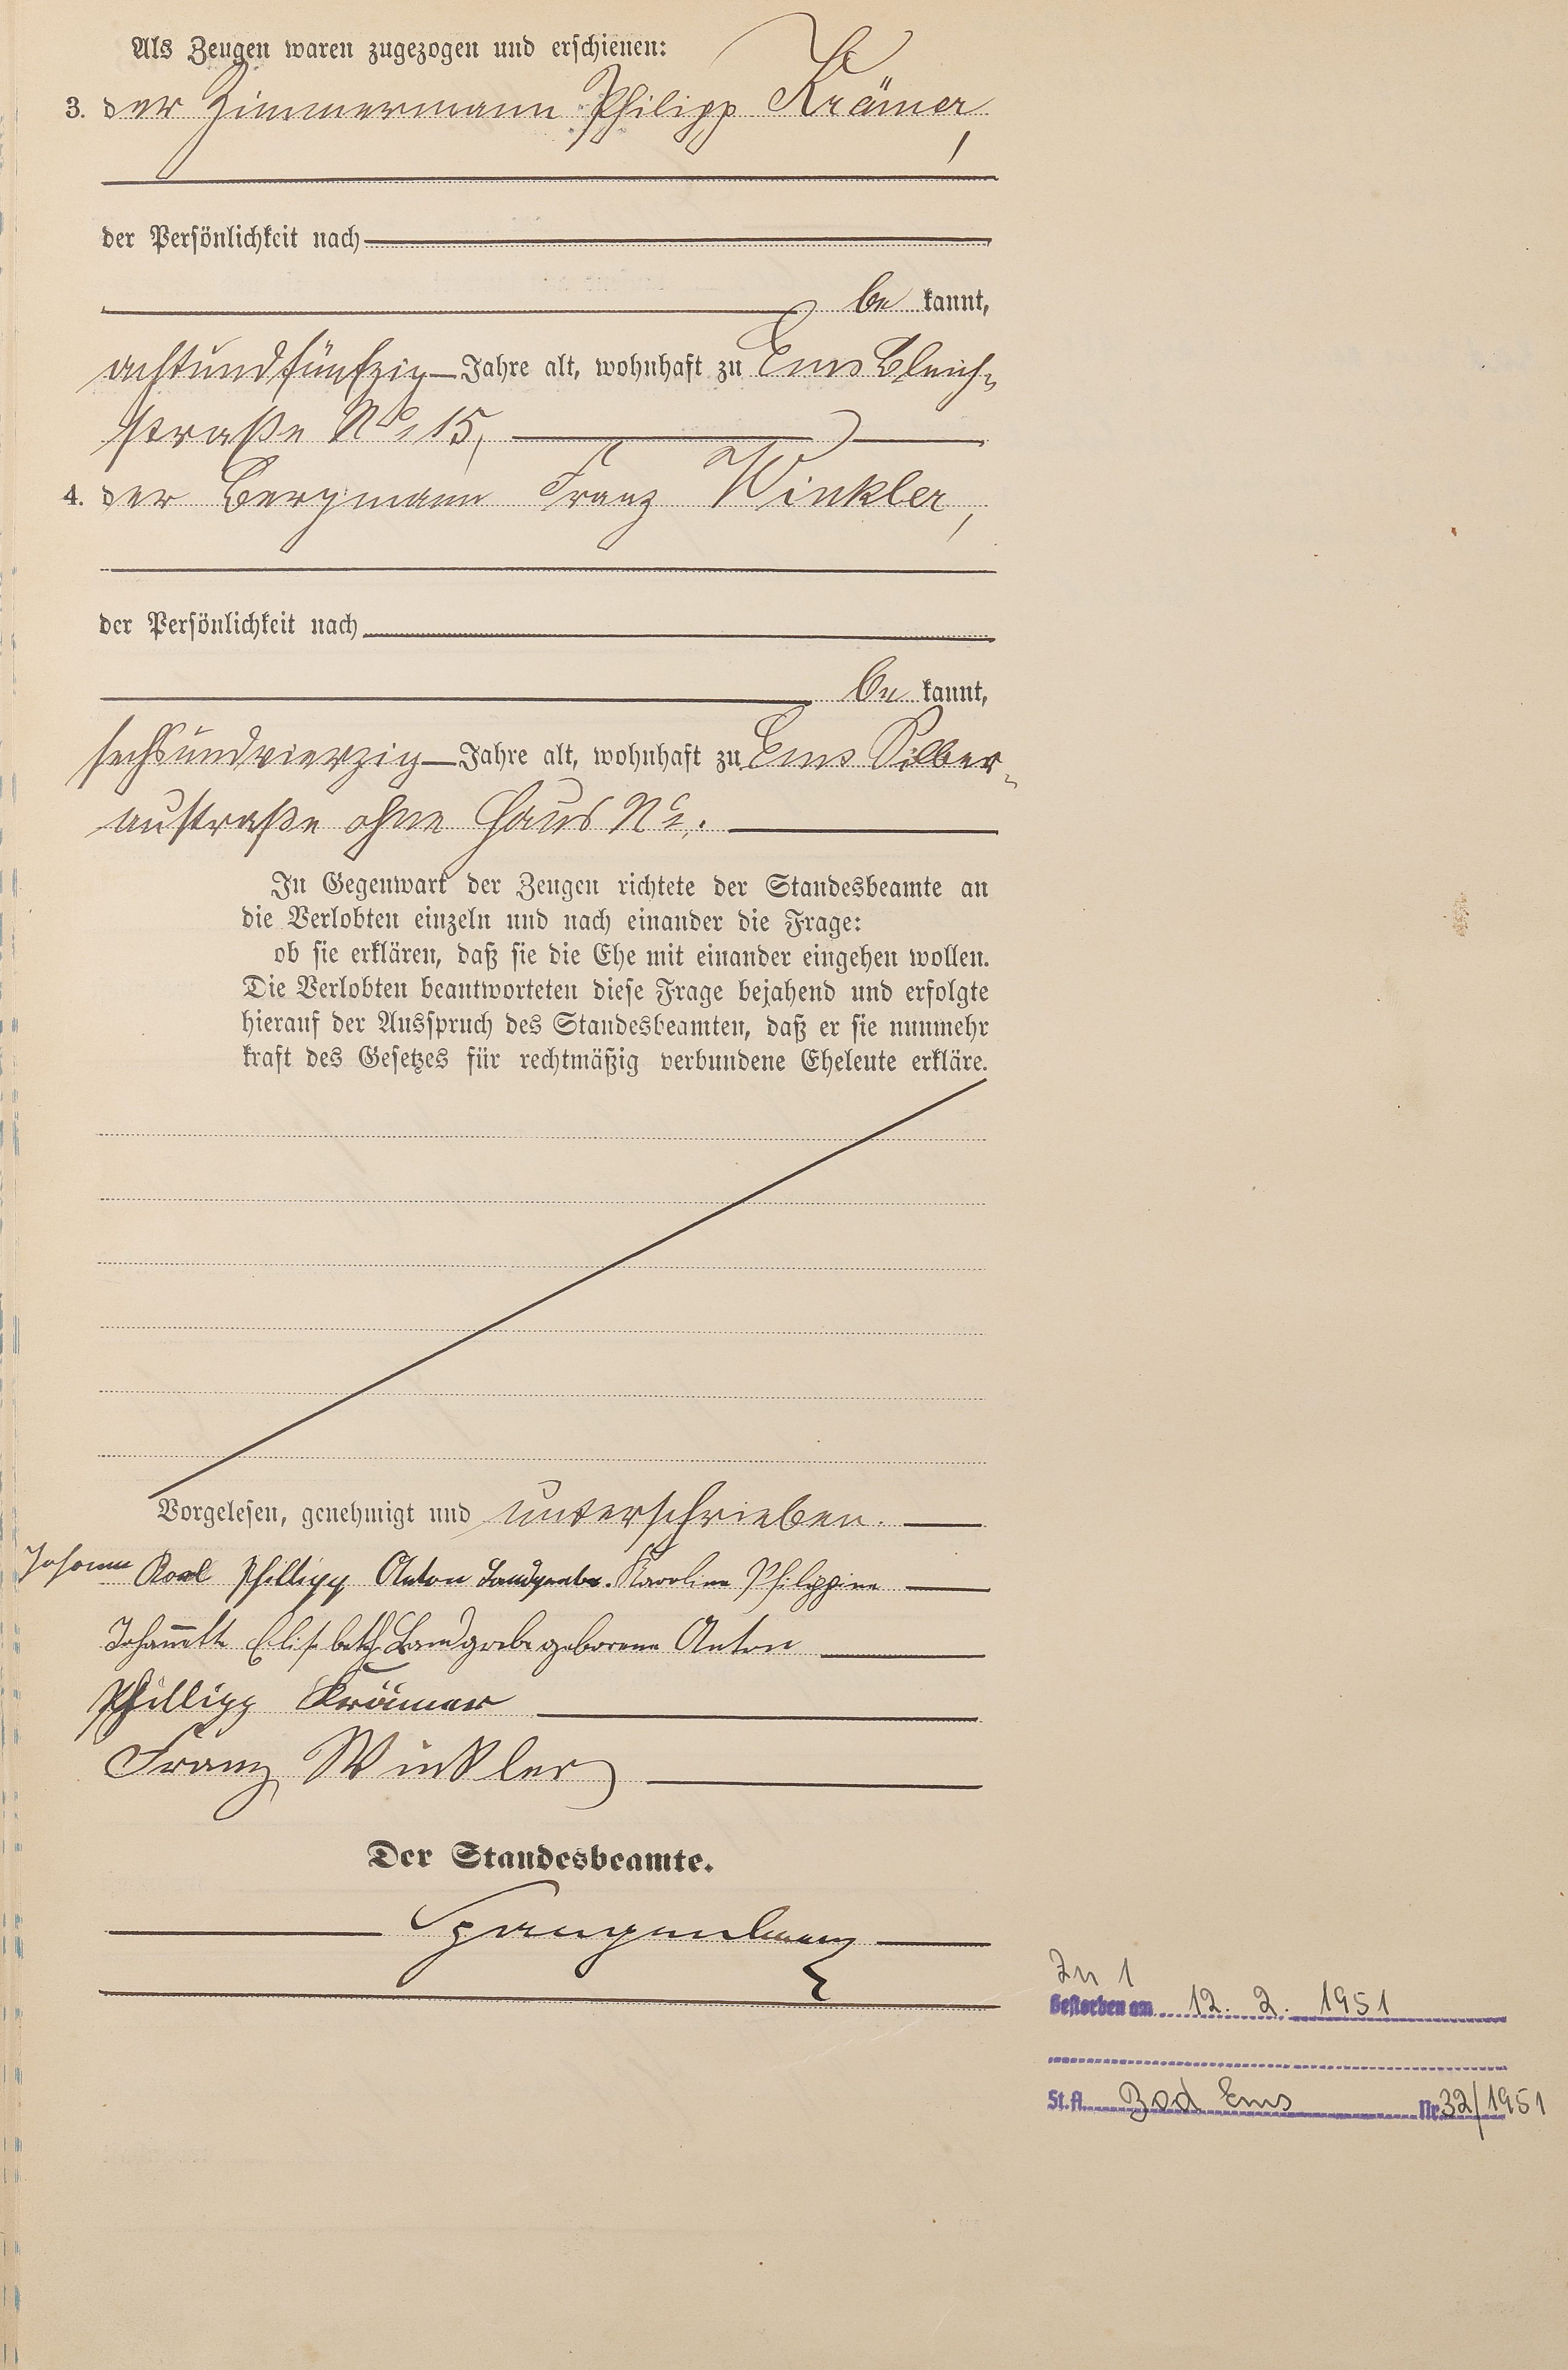 Als Zeugen waren zugezogen und erschienen:
3. der Zimmermann Philipp Krämer,
der Persönlichkeit nach
be kannt,
achtundfünfzig Jahre alt, wohnhaft zu Ems Bleich-
straße No. 15,
4. der Bergmann Franz Winkler,
der Persönlichkeit nach
be kannt,
sechsundvierzig Jahre alt, wohnhaft zu Ems Silber-
austraße ohne Haus No.
In Gegenwart der Zeugen richtete der Standesbeamte an
die Verlobten einzeln und nach einander die Frage:
ob sie erklären, daß sie die Ehe mit einander eingehen wollen.
Die Verlobten beantworteten diese Frage bejahend und erfolgte
hierauf der Ausspruch des Standesbeamten, daß er sie nunmehr
kraft des Gesetzes für rechtmäßig verbundene Eheleute erkläre.
Vorgelesen, genehmigt und unterschrieben.
Johann Karl Phillipp Anton Landgrebe. Karoline Philippine
Johannette Elisabeth Landgrebe geborene Anton
Phillipp Krämer
Franz Winkler
Der Standesbeamte.
Zu 1
Gestorben am 12. 2. 1951
St. A. Bad Ems Nr. 32/1951